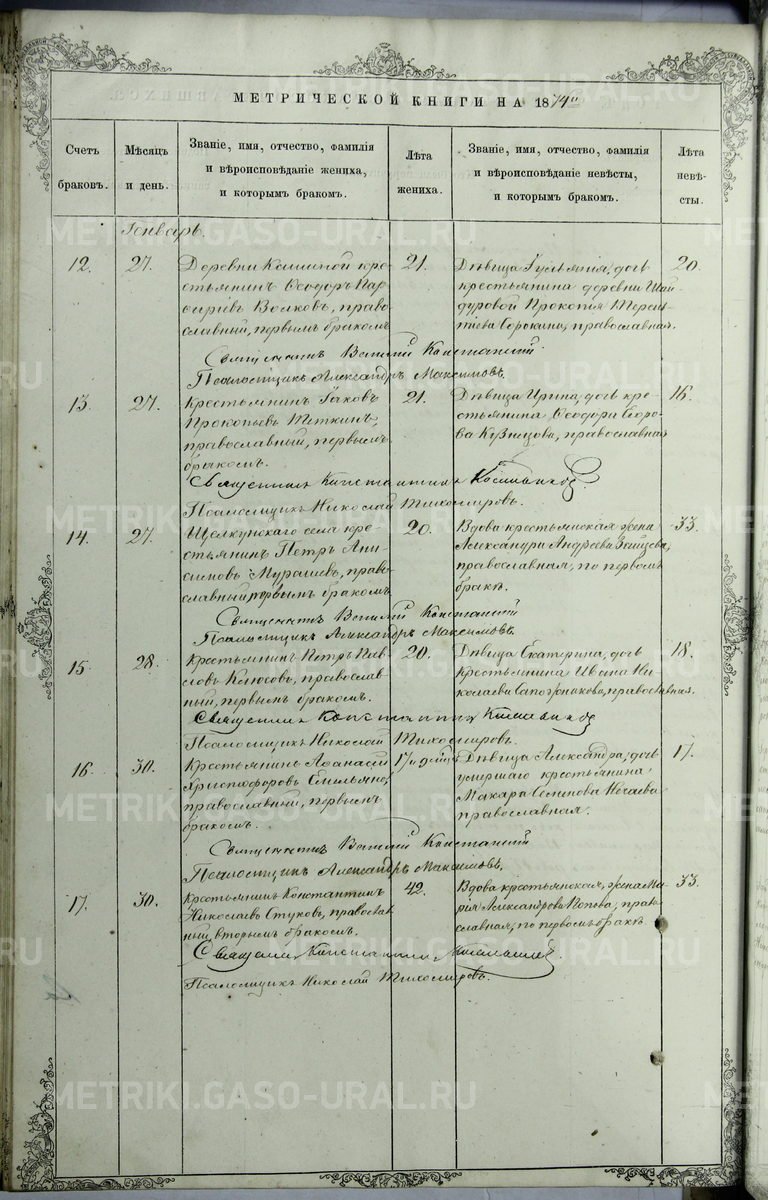 МЕТРИЧЕСКОЙ КНИГИ НА 1874й
Счетъ браковъ.
Мѣсяцъ и день.
Званіе, имя, отчество, фамилія и вѣроисповѣданіе жениха, и которымъ бракомъ.
Лѣта жениха.
Званіе, имя, отчество, фамилія и вѣроисповѣданіе невѣсты, и которымъ бракомъ.
Лѣта невѣсты.
Генварь.
12. 27.
Деревни кре-
стьянинъ Ѳеодоръ Пар-
Волковъ, право-
славный, первымъ бракомъ
21.
Дѣвица дочь
крестьянина деревни Шай-
дуровой Прокопія Терен-
тіева Сорокина, православная.
20.
Священникъ Василій
Псаломщикъ Александръ Максимовъ.
13. 27.
Крестьянинъ Іаковъ
Прокопьевъ Теткинъ,
православный, первымъ
бракомъ.
21.
Дѣвица Ирина, дочь кре-
стьянина Ѳеодора Егоро-
ва Кузнецова, православная
16.
Священникъ Константинъ
Псаломщикъ Николай Тихомировъ.
14. 27.
Щелкунскаго села кре-
стьянинъ Петръ Ани-
симовъ Мурашевъ, право-
славный первымъ бракомъ
20.
Вдова крестьянская жена
Александра Андреева Зайцева,
православная, по первомъ
бракѣ.
33.
Священникъ Василій
Псаломщикъ Александръ Максимовъ.
15. 28.
Крестьянинъ Петръ
православ-
ный, первымъ бракомъ.
20.
Дѣвица Екатерина, дочь
крестьянина Ивана Ни-
колаева Сапожникова, православная.
18.
Священникъ Константинъ
Псаломщикъ Николай Тихомировъ.
16. 30.
Крестьянинъ Аѳанасій
Христофоровъ
православный, первымъ
бракомъ.
17
Дѣвица Александра, дочь
умершаго крестьянина
Макара Семенова Нечаева
православная.
17.
Священникъ Василій
Псаломщикъ Александръ Максимовъ.
17. 30.
Крестьянинъ Константинъ
Николаевъ Стуковъ, православ-
ный, вторымъ бракомъ.
42.
Вдова крестьянская, жена Ма-
рія Александрова Попова, право-
славная, по первомъ бракѣ
33.
Священникъ Константинъ
Псаломщикъ Николай Тихомировъ.
METRIKI.GASO-URAL.RU